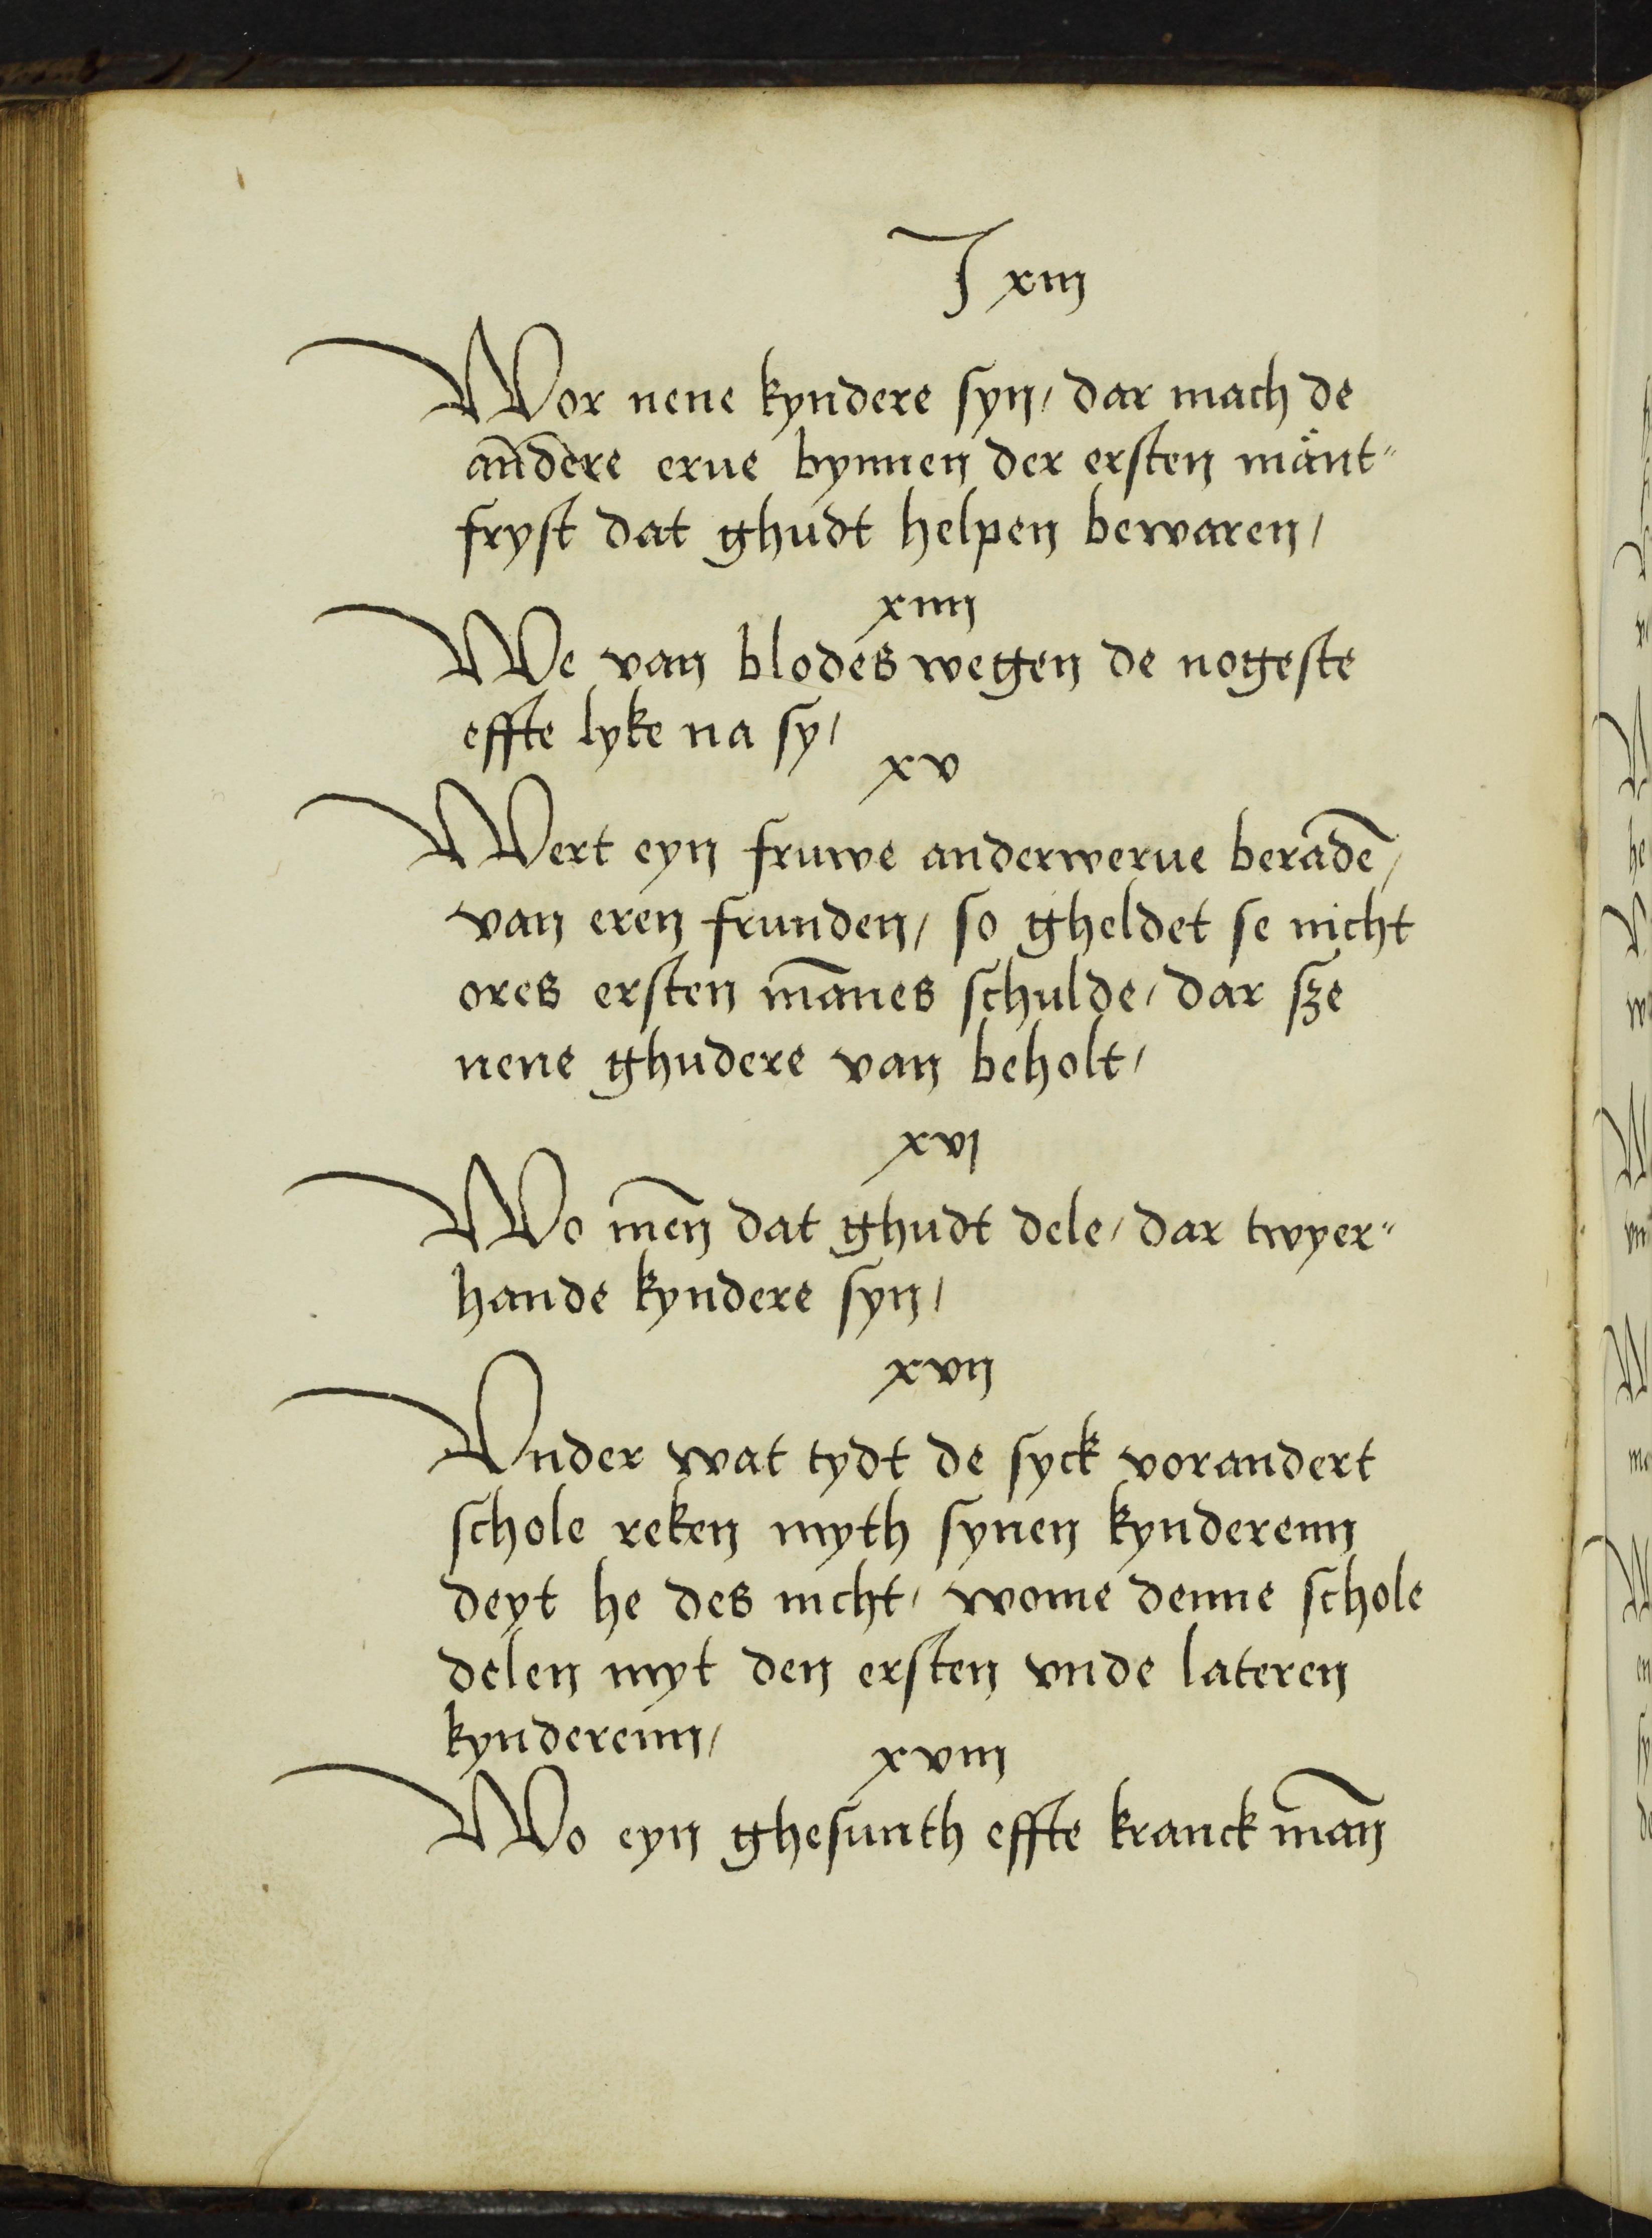 J xiij
Wor nene kyndere syn/ dar mach de
an̄dere erue bynnen der ersten mȧnt⸗
fryst dat ghudt helpen bewaren/
xiiij
We van blodes wegen de nogeste
effte lyke na sy/
xv
Wert eyn fruwe anderwerue beradē/
van eren frunden/ so gheldet se nicht
ores ersten mānes schulde/ dar sze
nene ghudere van beholt/
xvj
Wo mēn dat ghudt dele/ dar twyer⸗
hande kyndere syn/
xvij
Vnder wat tydt de syck vorandert
schole reken myth synen kynderenn
deyt he des nicht/ wome denne schole
delen myt den ersten vnde lateren
kynderenn/
xviij
Wo eyn ghesunth effte kranck mān